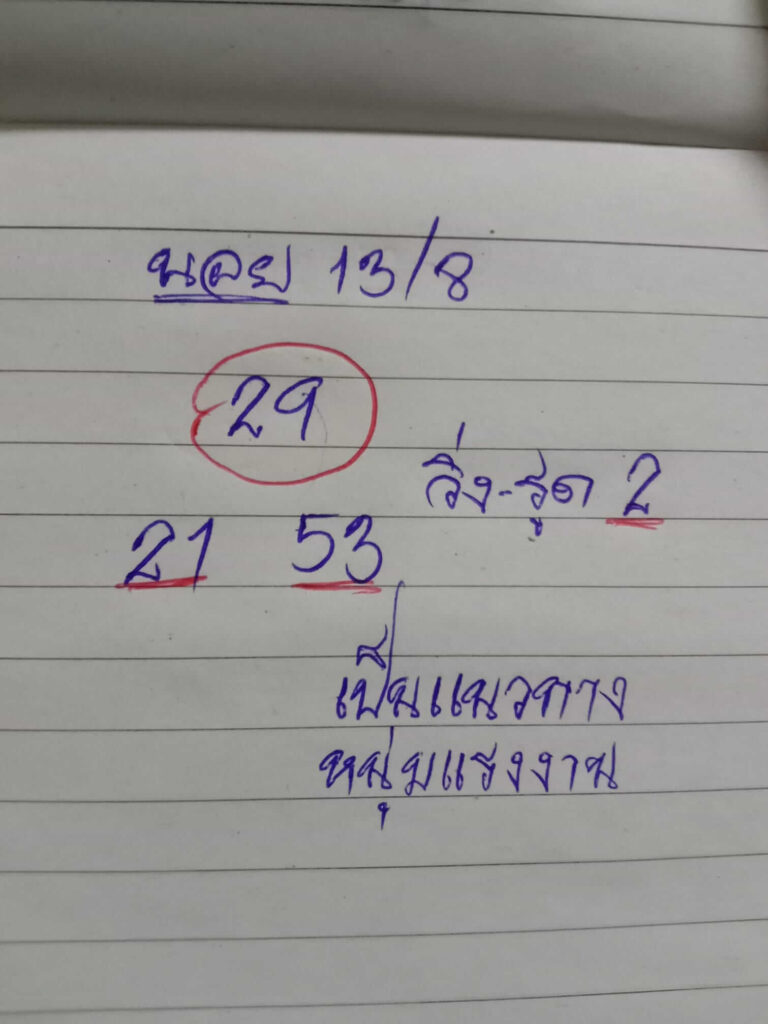 นอย 13/8
29
วิ่ง-รูด 2
21 53
เป็นแนวทาง
หนุ่มแรงงาน